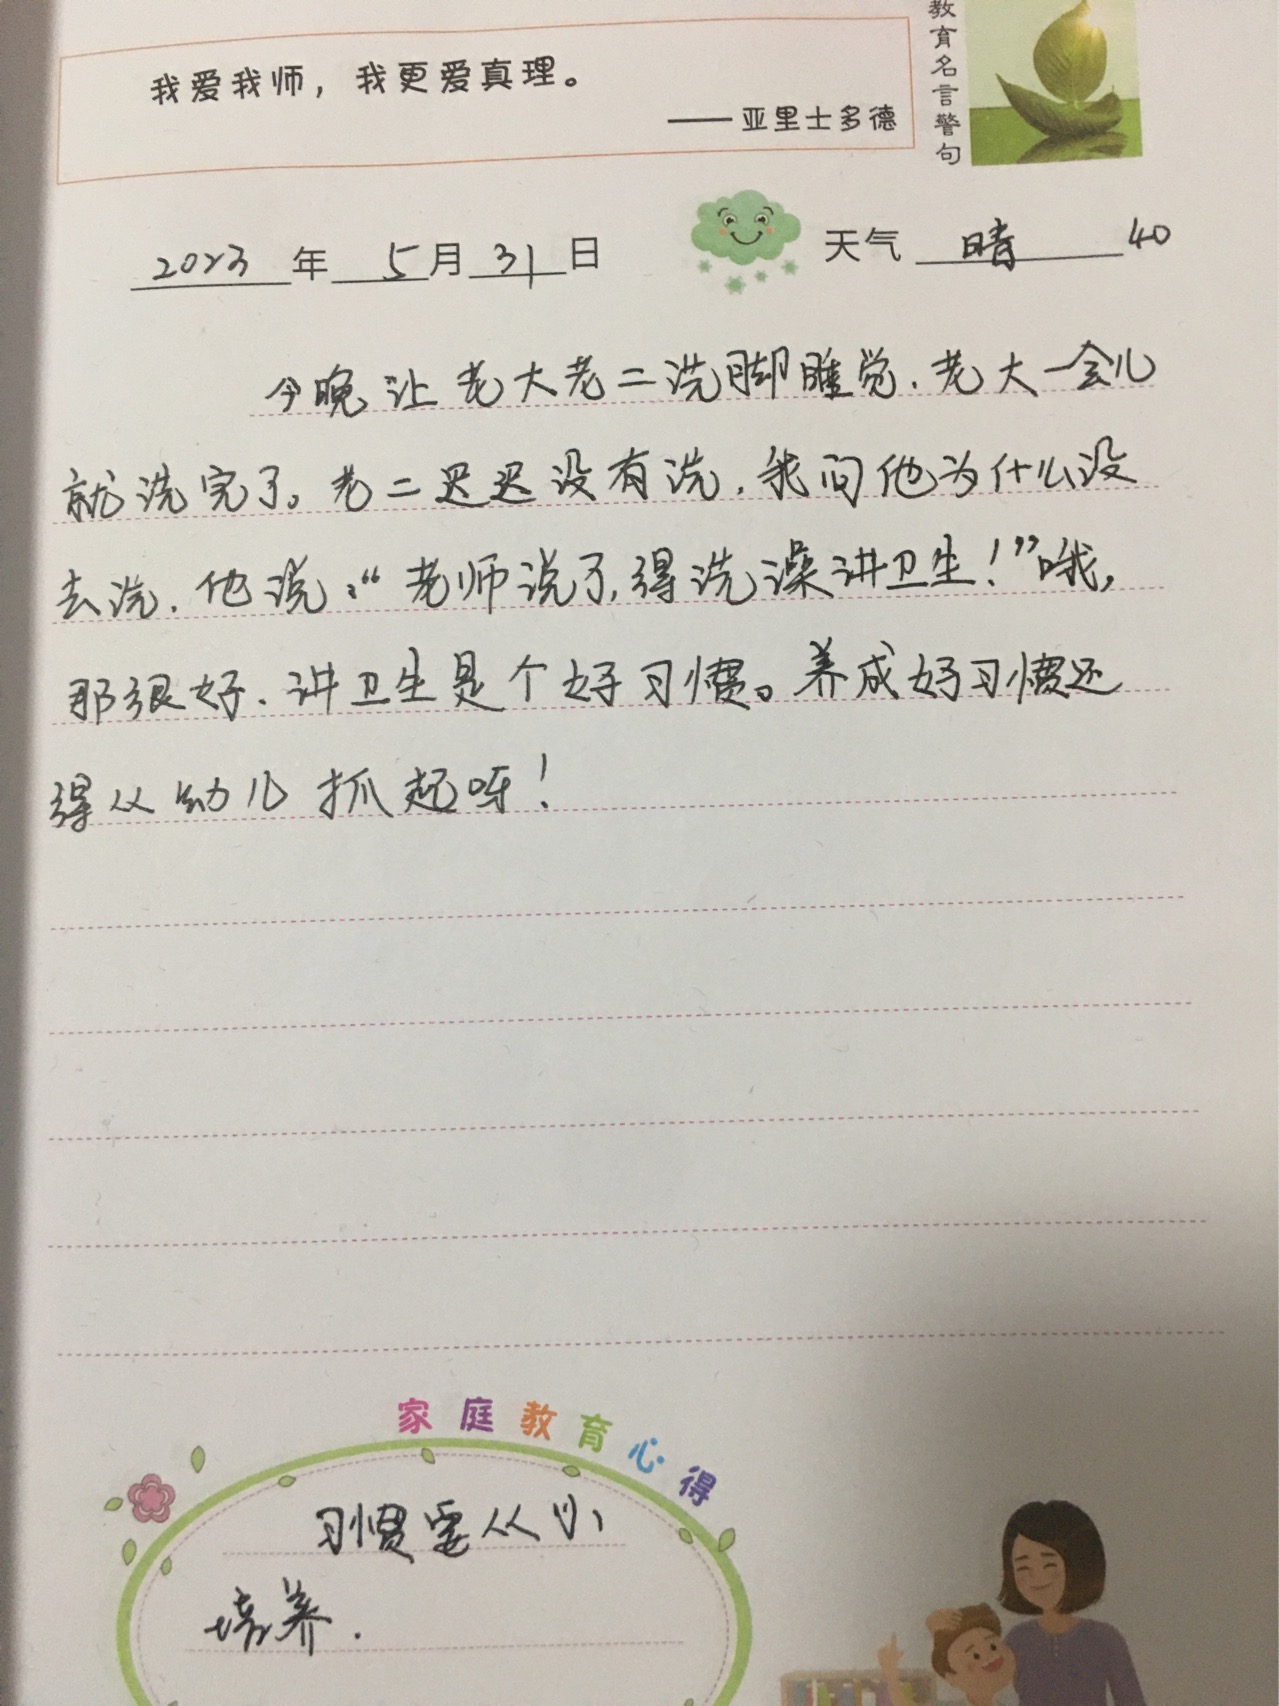 我爱我师，我更爱真理。
——亚里士多德
教育名言警句
2023年 5月31日
天气 晴 40
今晚让老大老二洗脚睡觉.老大一会儿
就洗完了。老二迟迟没有洗,我问他为什么没
去洗.他说:“老师说了,得洗澡讲卫生!”哦,
那很好.讲卫生是个好习惯。养成好习惯还
得从幼儿抓起呀!
家庭教育心得
习惯要从小
培养.